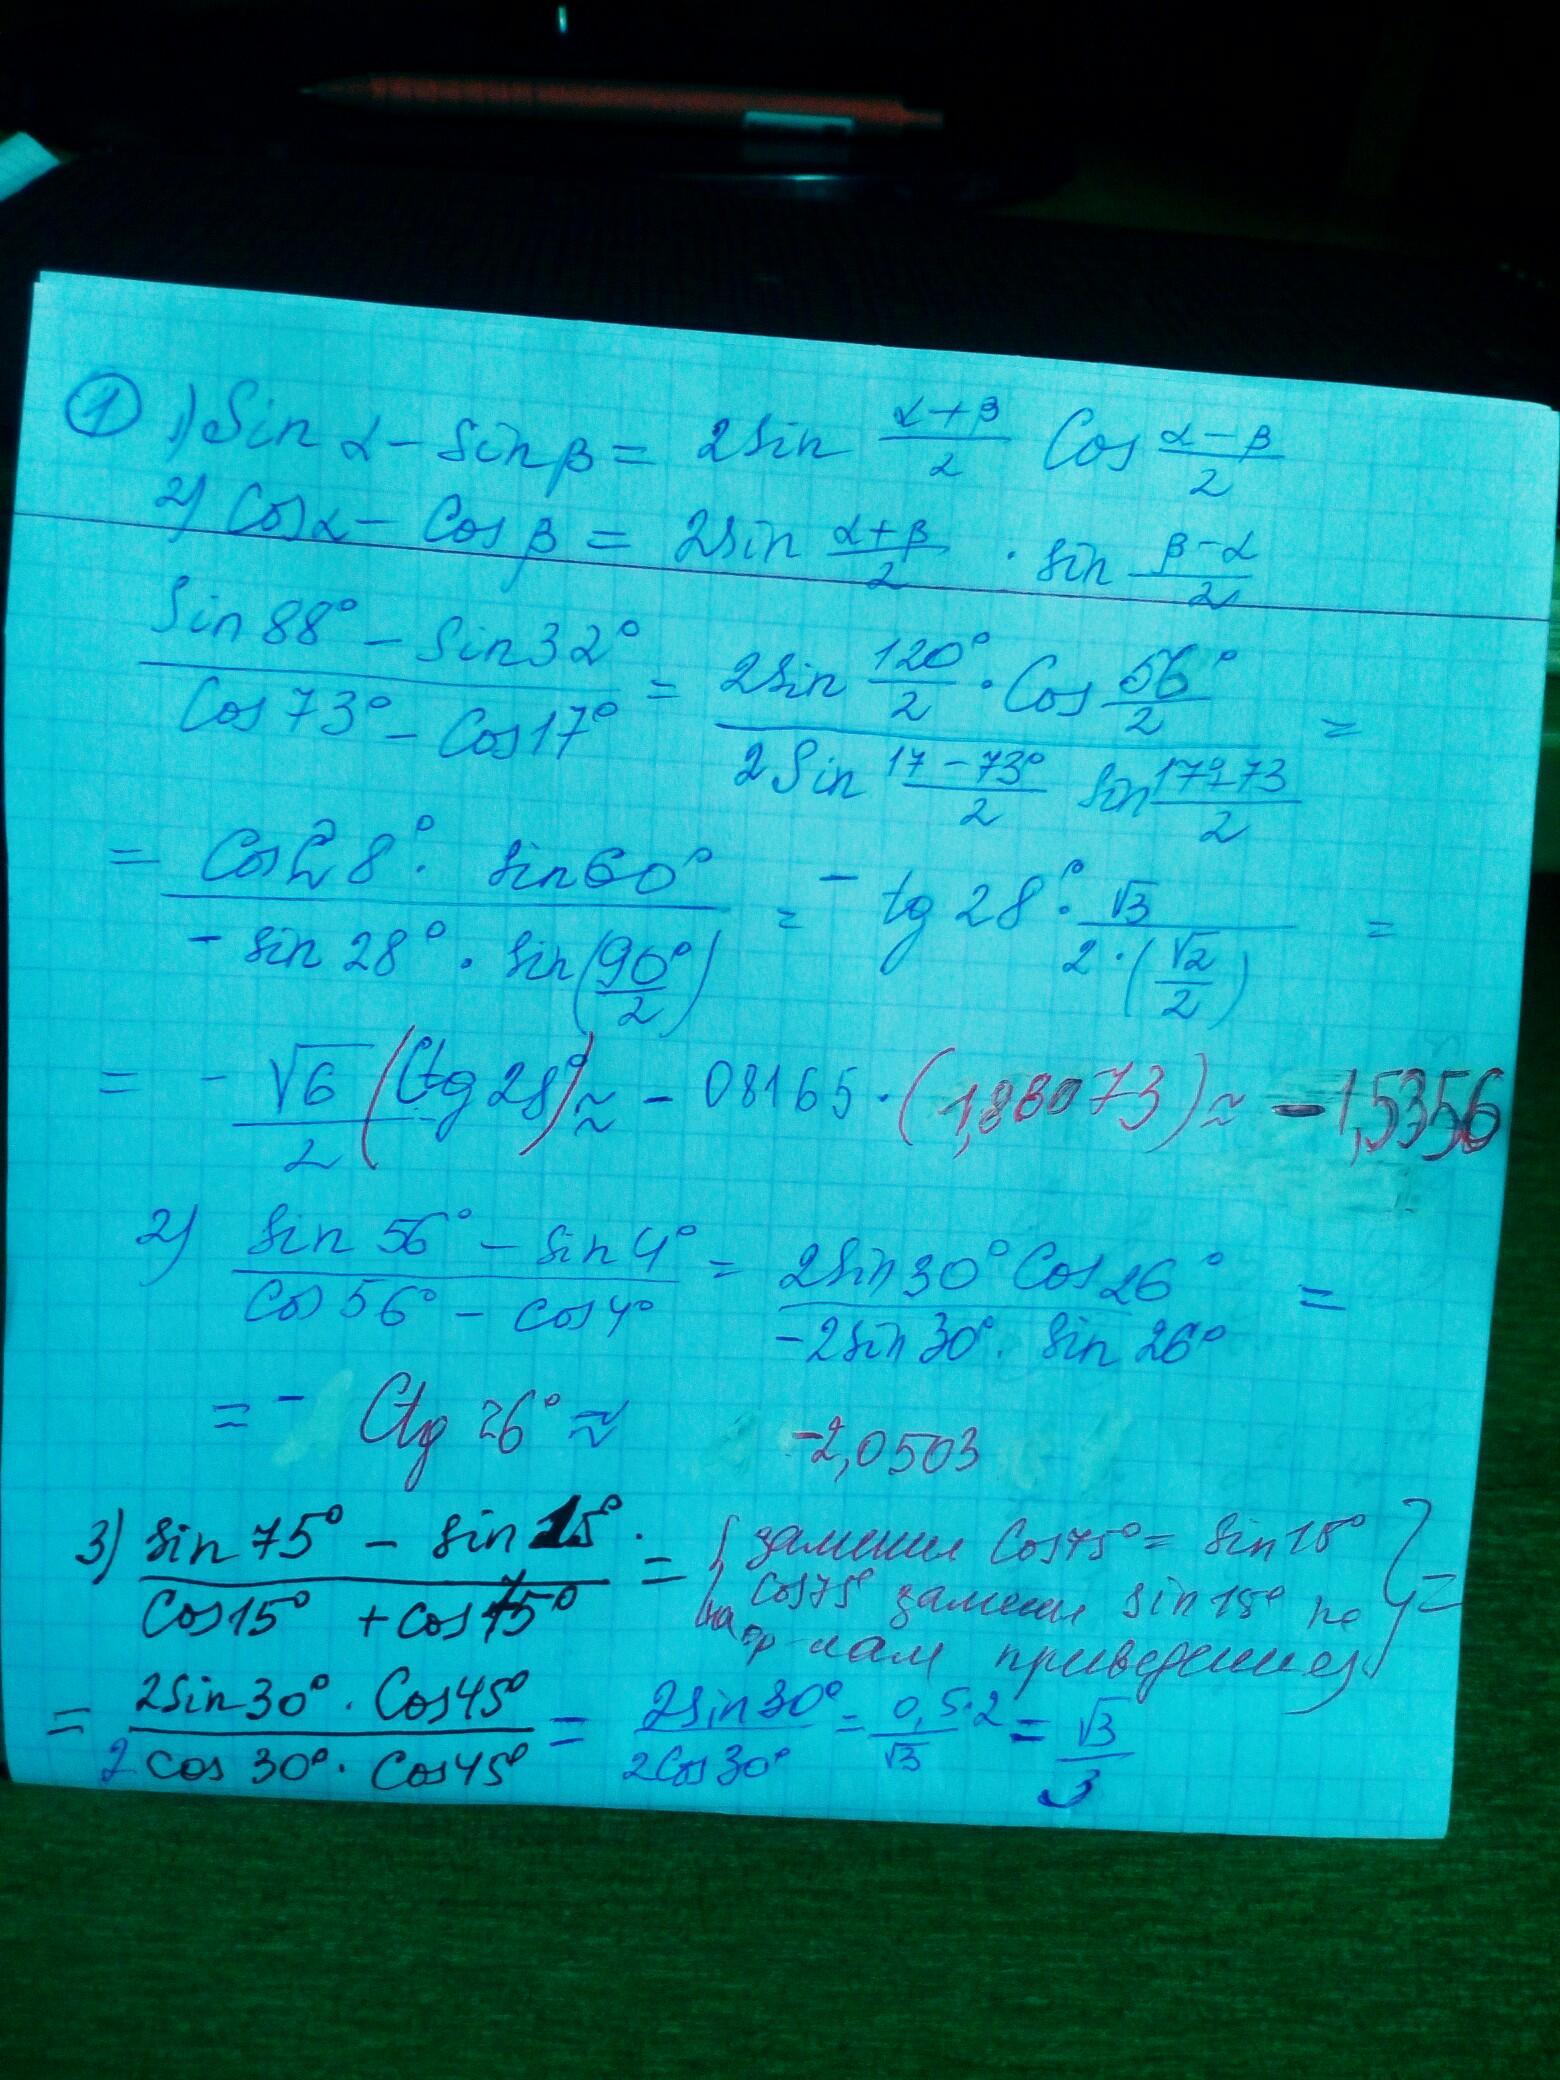 ① 1) Sin α − Sin β = 2sin (α+β)/2 Cos (α−β)/2
2) Cos α − Cos β = 2sin (α+β)/2 · sin (β−α)/2
(Sin 88° − Sin 32°)/(Cos 73° − Cos 17°) = (2sin 120°/2 · Cos 56°/2)/(2 Sin (17−73°)/2 Sin (17°+73)/2) =
= (Cos 28° · sin 60°)/(−sin 28° · sin(90°/2)) = −tg 28° · √3/(2·(√2/2)) =
= −√6/2 (Ctg 28°) ≈ −08165 · (1,88073) ≈ −1,5356
2) (sin 56° − sin 4°)/(cos 56° − cos 4°) = (2sin 30° Cos 26°)/(−2sin 30° · sin 26°) =
= − Ctg 26° ≈ −2,0503
3) (sin 75° − sin 15°)/(cos 15° + cos 75°) = { заменим Cos 75° = sin 15°
cos 75° заменим sin 15° по
приведения } =
= (2sin 30° · Cos 45°)/(2 cos 30° · Cos 45°) = 2sin 30°/2Cos 30° = 0,5·2/√3 = √3/3